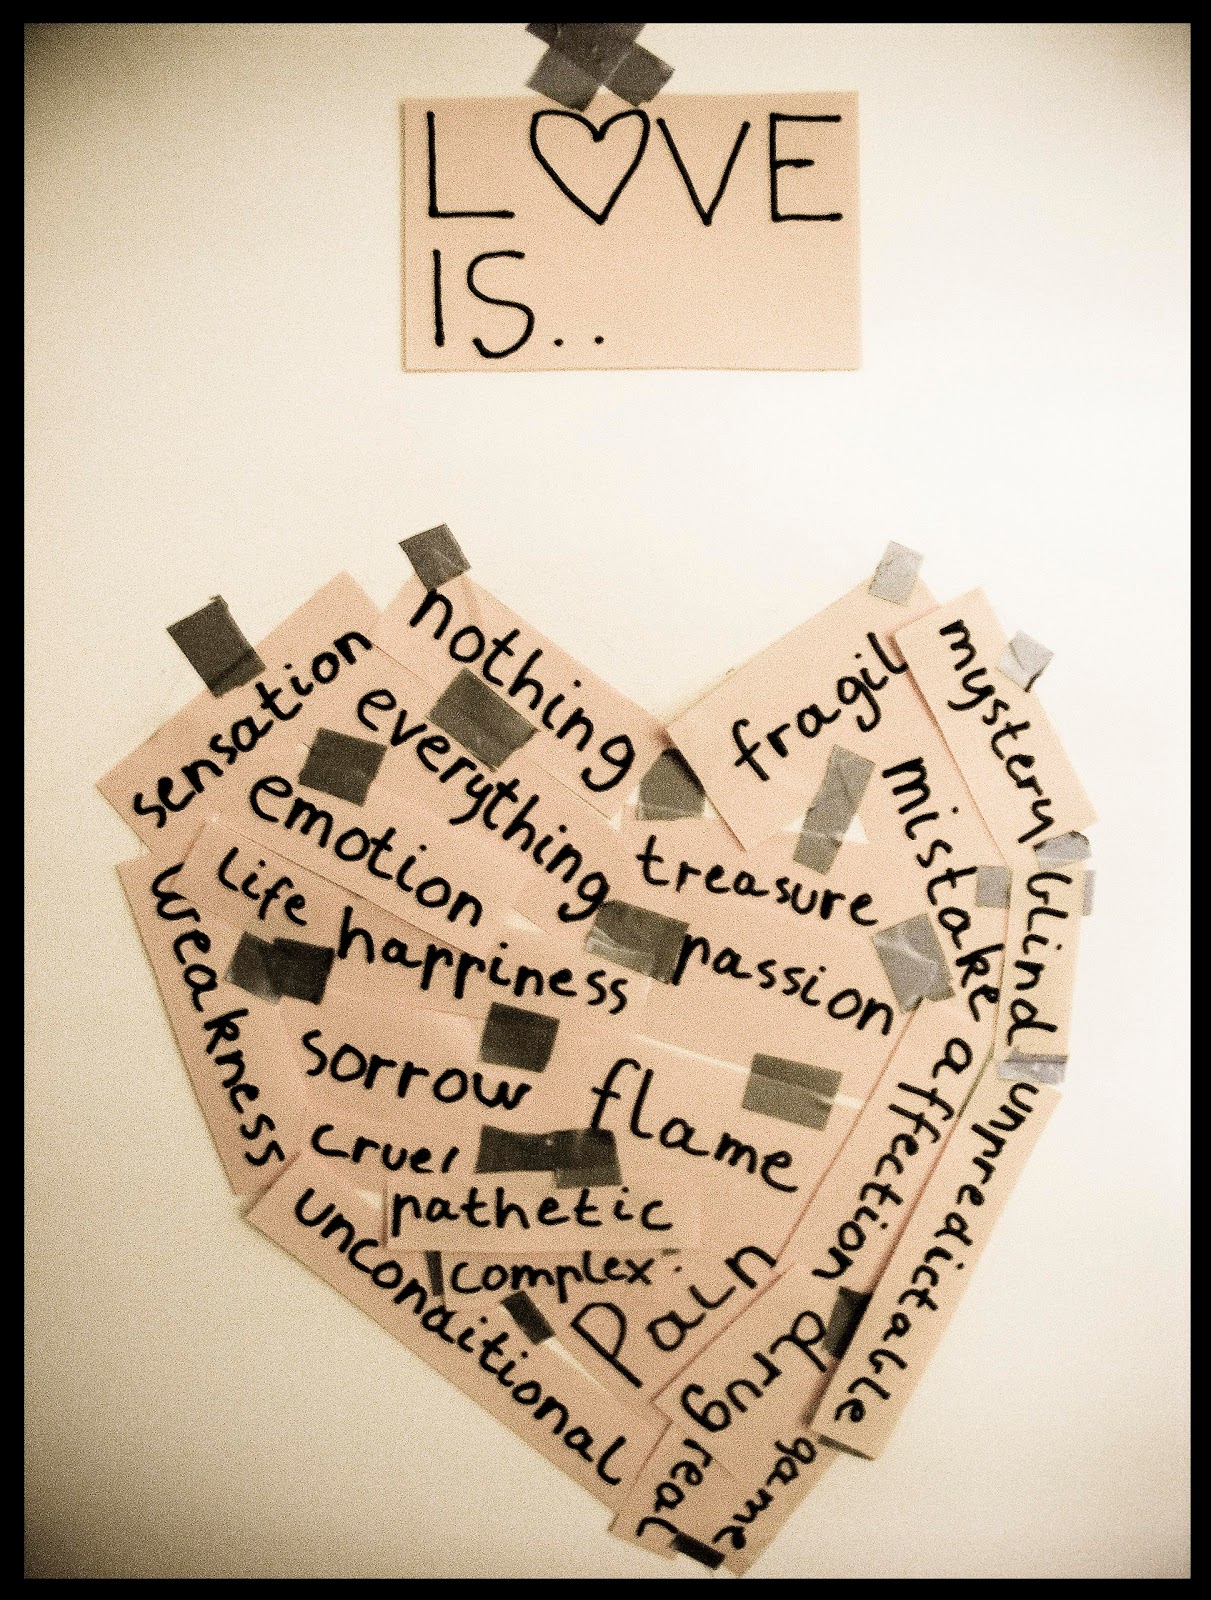 L♡VE
IS..
nothing
sensation
everything
emotion
life
happiness
weakness
fragil
mystery
treasure
mistake
passion
blind
sorrow
flame
affection
unpredictable
cruel
pathetic
complex
unconditional
pain
drug
real
game